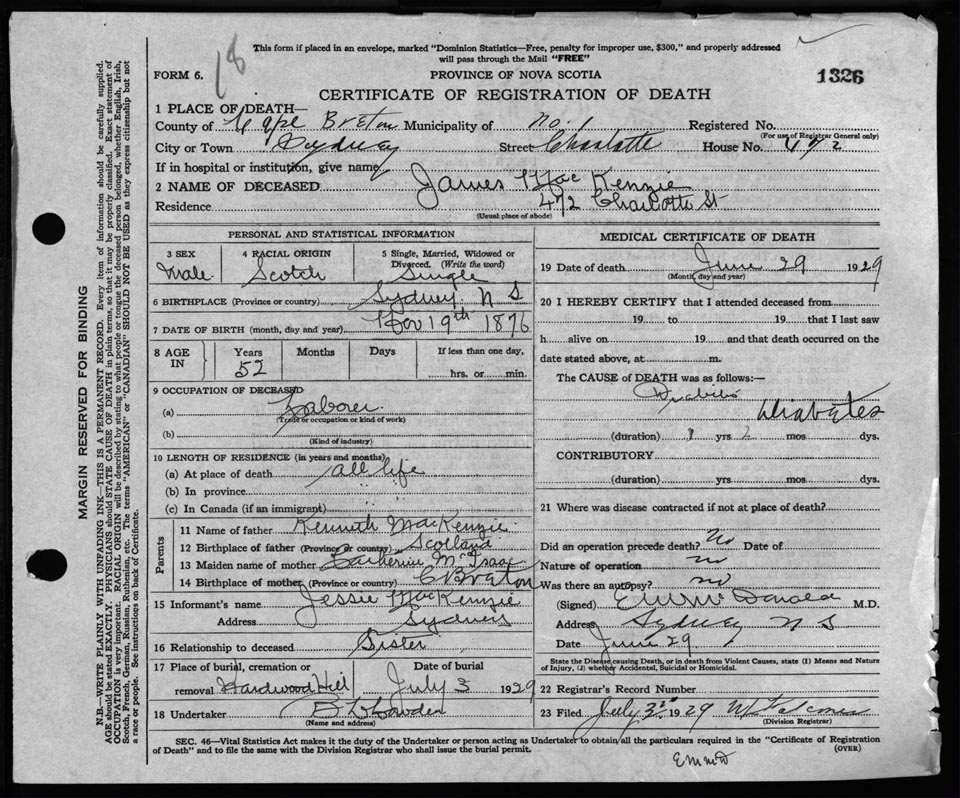 18
This form if placed in an envelope, marked "Dominion Statistics—Free, penalty for improper use, $300," and properly addressed
will pass through the Mail "FREE"
FORM 6.
PROVINCE OF NOVA SCOTIA
1326
CERTIFICATE OF REGISTRATION OF DEATH
1 PLACE OF DEATH—
County of Cape Breton Municipality of no. 1 Registered No.
(For use of Registrar General only)
City or Town Sydney Street Charlotte House No. 472
If in hospital or institution, give name
2 NAME OF DECEASED James MacKenzie
Residence 472 Charlotte St
(Usual place of abode)
PERSONAL AND STATISTICAL INFORMATION
3 SEX 4 RACIAL ORIGIN 5 Single, Married, Widowed or
Divorced. (Write the word)
Male Scotch Single
6 BIRTHPLACE (Province or country) Sydney N S
7 DATE OF BIRTH (month, day and year) Nov 19th 1876
8 AGE IN Years Months Days If less than one day,
52 hrs. or min.
9 OCCUPATION OF DECEASED
(a) Laborer
(Trade or occupation or kind of work)
(b)
(Kind of industry)
10 LENGTH OF RESIDENCE (in years and months)
(a) At place of death all life
(b) In province " "
(c) In Canada (if an immigrant)
Parents
11 Name of father Kenneth MacKenzie
12 Birthplace of father (Province or country) Scotland
13 Maiden name of mother Catherine McIsaac
14 Birthplace of mother (Province or country) C Breton
15 Informant's name Jessie MacKenzie
Address Sydney
16 Relationship to deceased Sister
17 Place of burial, cremation or Date of burial
removal Hardwood Hill July 3 1929
18 Undertaker
(Name and address)
MEDICAL CERTIFICATE OF DEATH
19 Date of death June 29 1929
(Month, day and year)
20 I HEREBY CERTIFY that I attended deceased from
19 to 19 that I last saw
h alive on 19 and that death occurred on the
date stated above, at m.
The CAUSE of DEATH was as follows:—
Diabetes
(duration) 1 yrs 2 mos dys.
CONTRIBUTORY
(duration) yrs mos dys.
21 Where was disease contracted if not at place of death?
Did an operation precede death? No Date of
Nature of operation no
Was there an autopsy? no
(Signed) McDonald M.D.
Address Sydney N S
Date June 29
State the Disease causing Death, or in death from Violent Causes, state (1) Means and Nature
of Injury, (2) whether Accidental, Suicidal or Homicidal.
22 Registrar's Record Number
23 Filed July 3rd 1929
(Division Registrar)
SEC. 46—Vital Statistics Act makes it the duty of the Undertaker or person acting as Undertaker to obtain all the particulars required in the "Certificate of Registration
of Death" and to file the same with the Division Registrar who shall issue the burial permit.
(OVER)
MARGIN RESERVED FOR BINDING
N.B.—WRITE PLAINLY WITH UNFADING INK—THIS IS A PERMANENT RECORD. Every item of information should be carefully supplied.
AGE should be stated EXACTLY. PHYSICIANS should STATE CAUSE OF DEATH in plain terms, so that it may be properly classified. Exact statement of
OCCUPATION is very important. RACIAL ORIGIN will be described by stating to what people or tongue the deceased person belonged, whether English, Irish,
Scotch, French, German, Russian, Ruthenian, etc. The terms "AMERICAN" or "CANADIAN" SHOULD NOT BE USED as they express citizenship but not
a race or people. See instructions on back of Certificate.